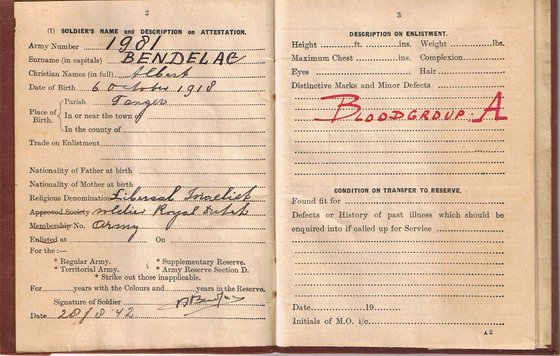 2
(I) SOLDIER'S NAME and DESCRIPTION on ATTESTATION.
Army Number 1981
Surname (in capitals) BENDELAC
Christian Names (in full) Albert
Date of Birth 6 October 1918
Place of Birth.
Parish Tanger
In or near the town
In the county of
Trade on Enlistment
Nationality of Father at birth
Nationality of Mother at birth
Religious Denomination Liberal Israelist
Approved Society soldier Royal Dutch
Membership No. Army
Enlisted at On
For the :—
* Regular Army. * Supplementary Reserve.
* Territorial Army. * Army Reserve Section D.
* Strike out those inapplicable.
For years with the Colours and years in the Reserve.
Signature of Soldier
Date 28/8 '42
3
DESCRIPTION ON ENLISTMENT.
Height ft. ins. Weight lbs.
Maximum Chest ins. Complexion
Eyes Hair
Distinctive Marks and Minor Defects
BLOODGROUP: A
CONDITION ON TRANSFER TO RESERVE.
Found fit for
Defects or History of past illness which should
be enquired into if called up for Service
Date 19
Initials of M.O. i/c
A 2